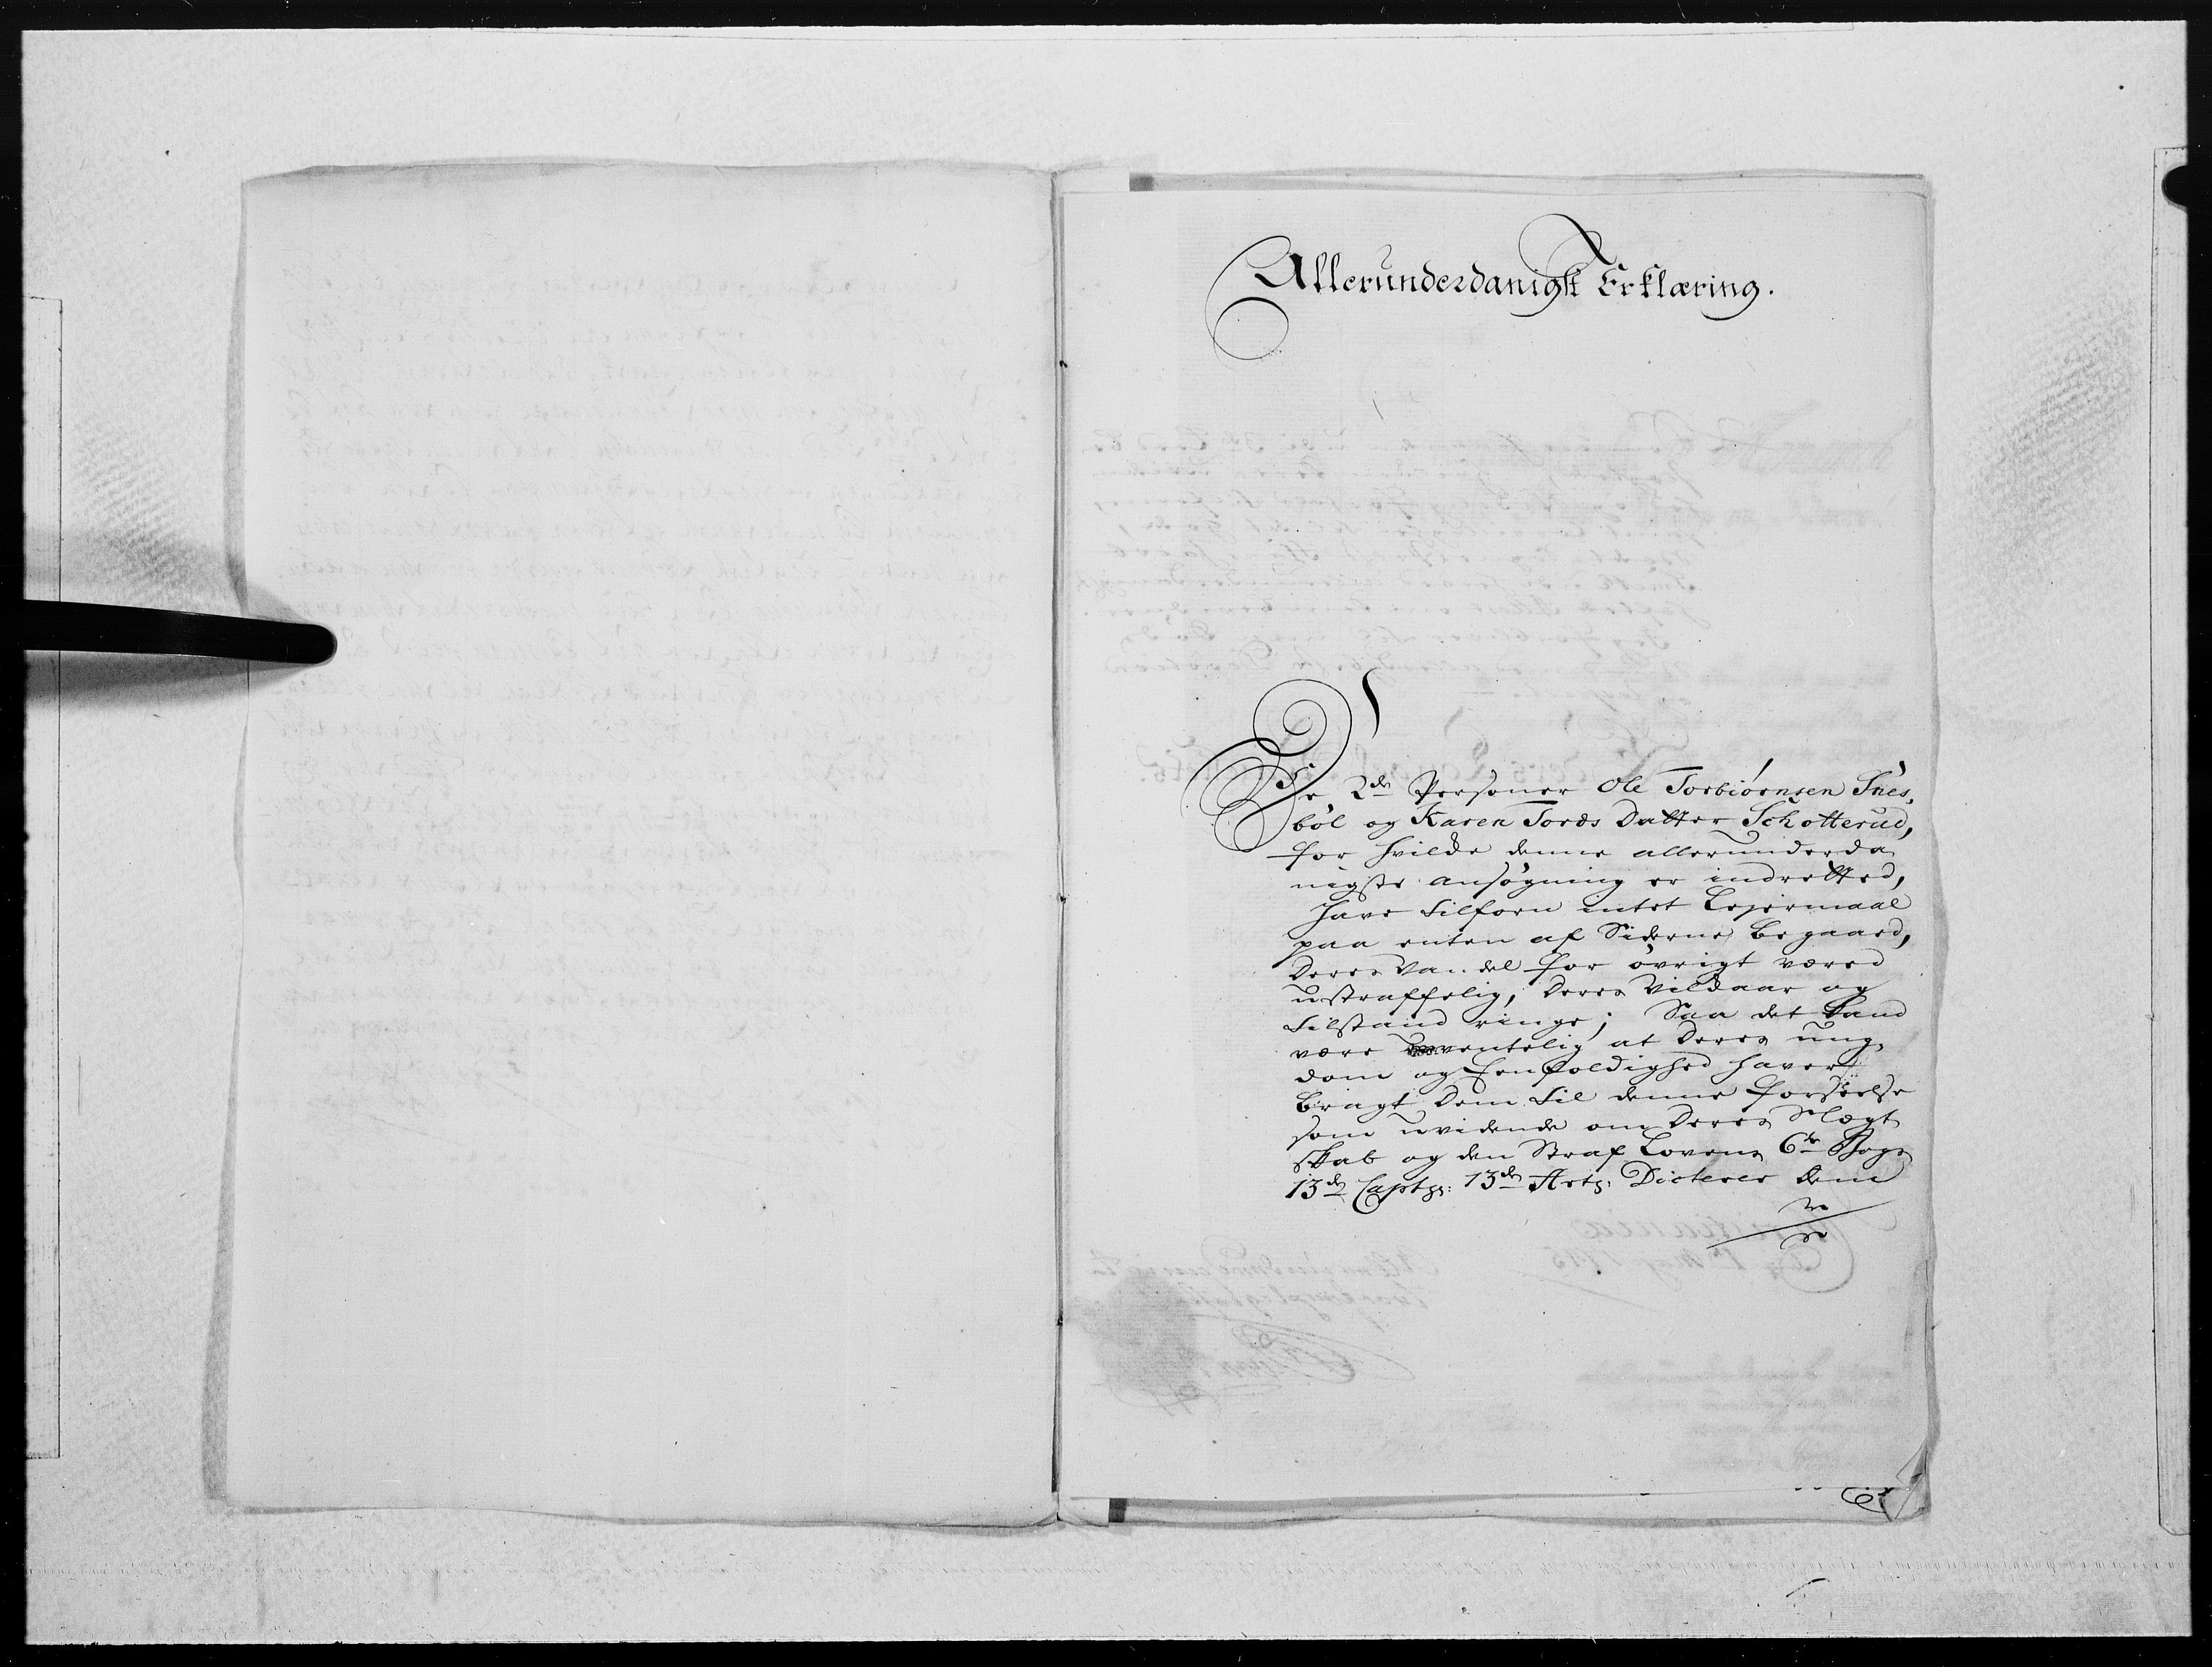 Allerunderdanigst Erklæring.
De 2de Personer Ole Torbiørnsen Snes,
bøl og Karen Tords Datter Schotterud,
for hvilde denne allerunderda
nigste ansøgning er indretted,
have tilforn intet Lejermaal
paa enten af Siderne begaaed,
Deres Vandel for øvrigt været
ustraffelig, Deres Vildaar og
tilstand ringe; Saa det kand
være ventelig at Deres ung,
dom og Eenfoldighed haver
bragt Dem til denne forseelse
som uvidende om Deres Slægt
skab og den Straf Lovens 6te Bogs
13de Capt: 13de Art: Dicterer Dem